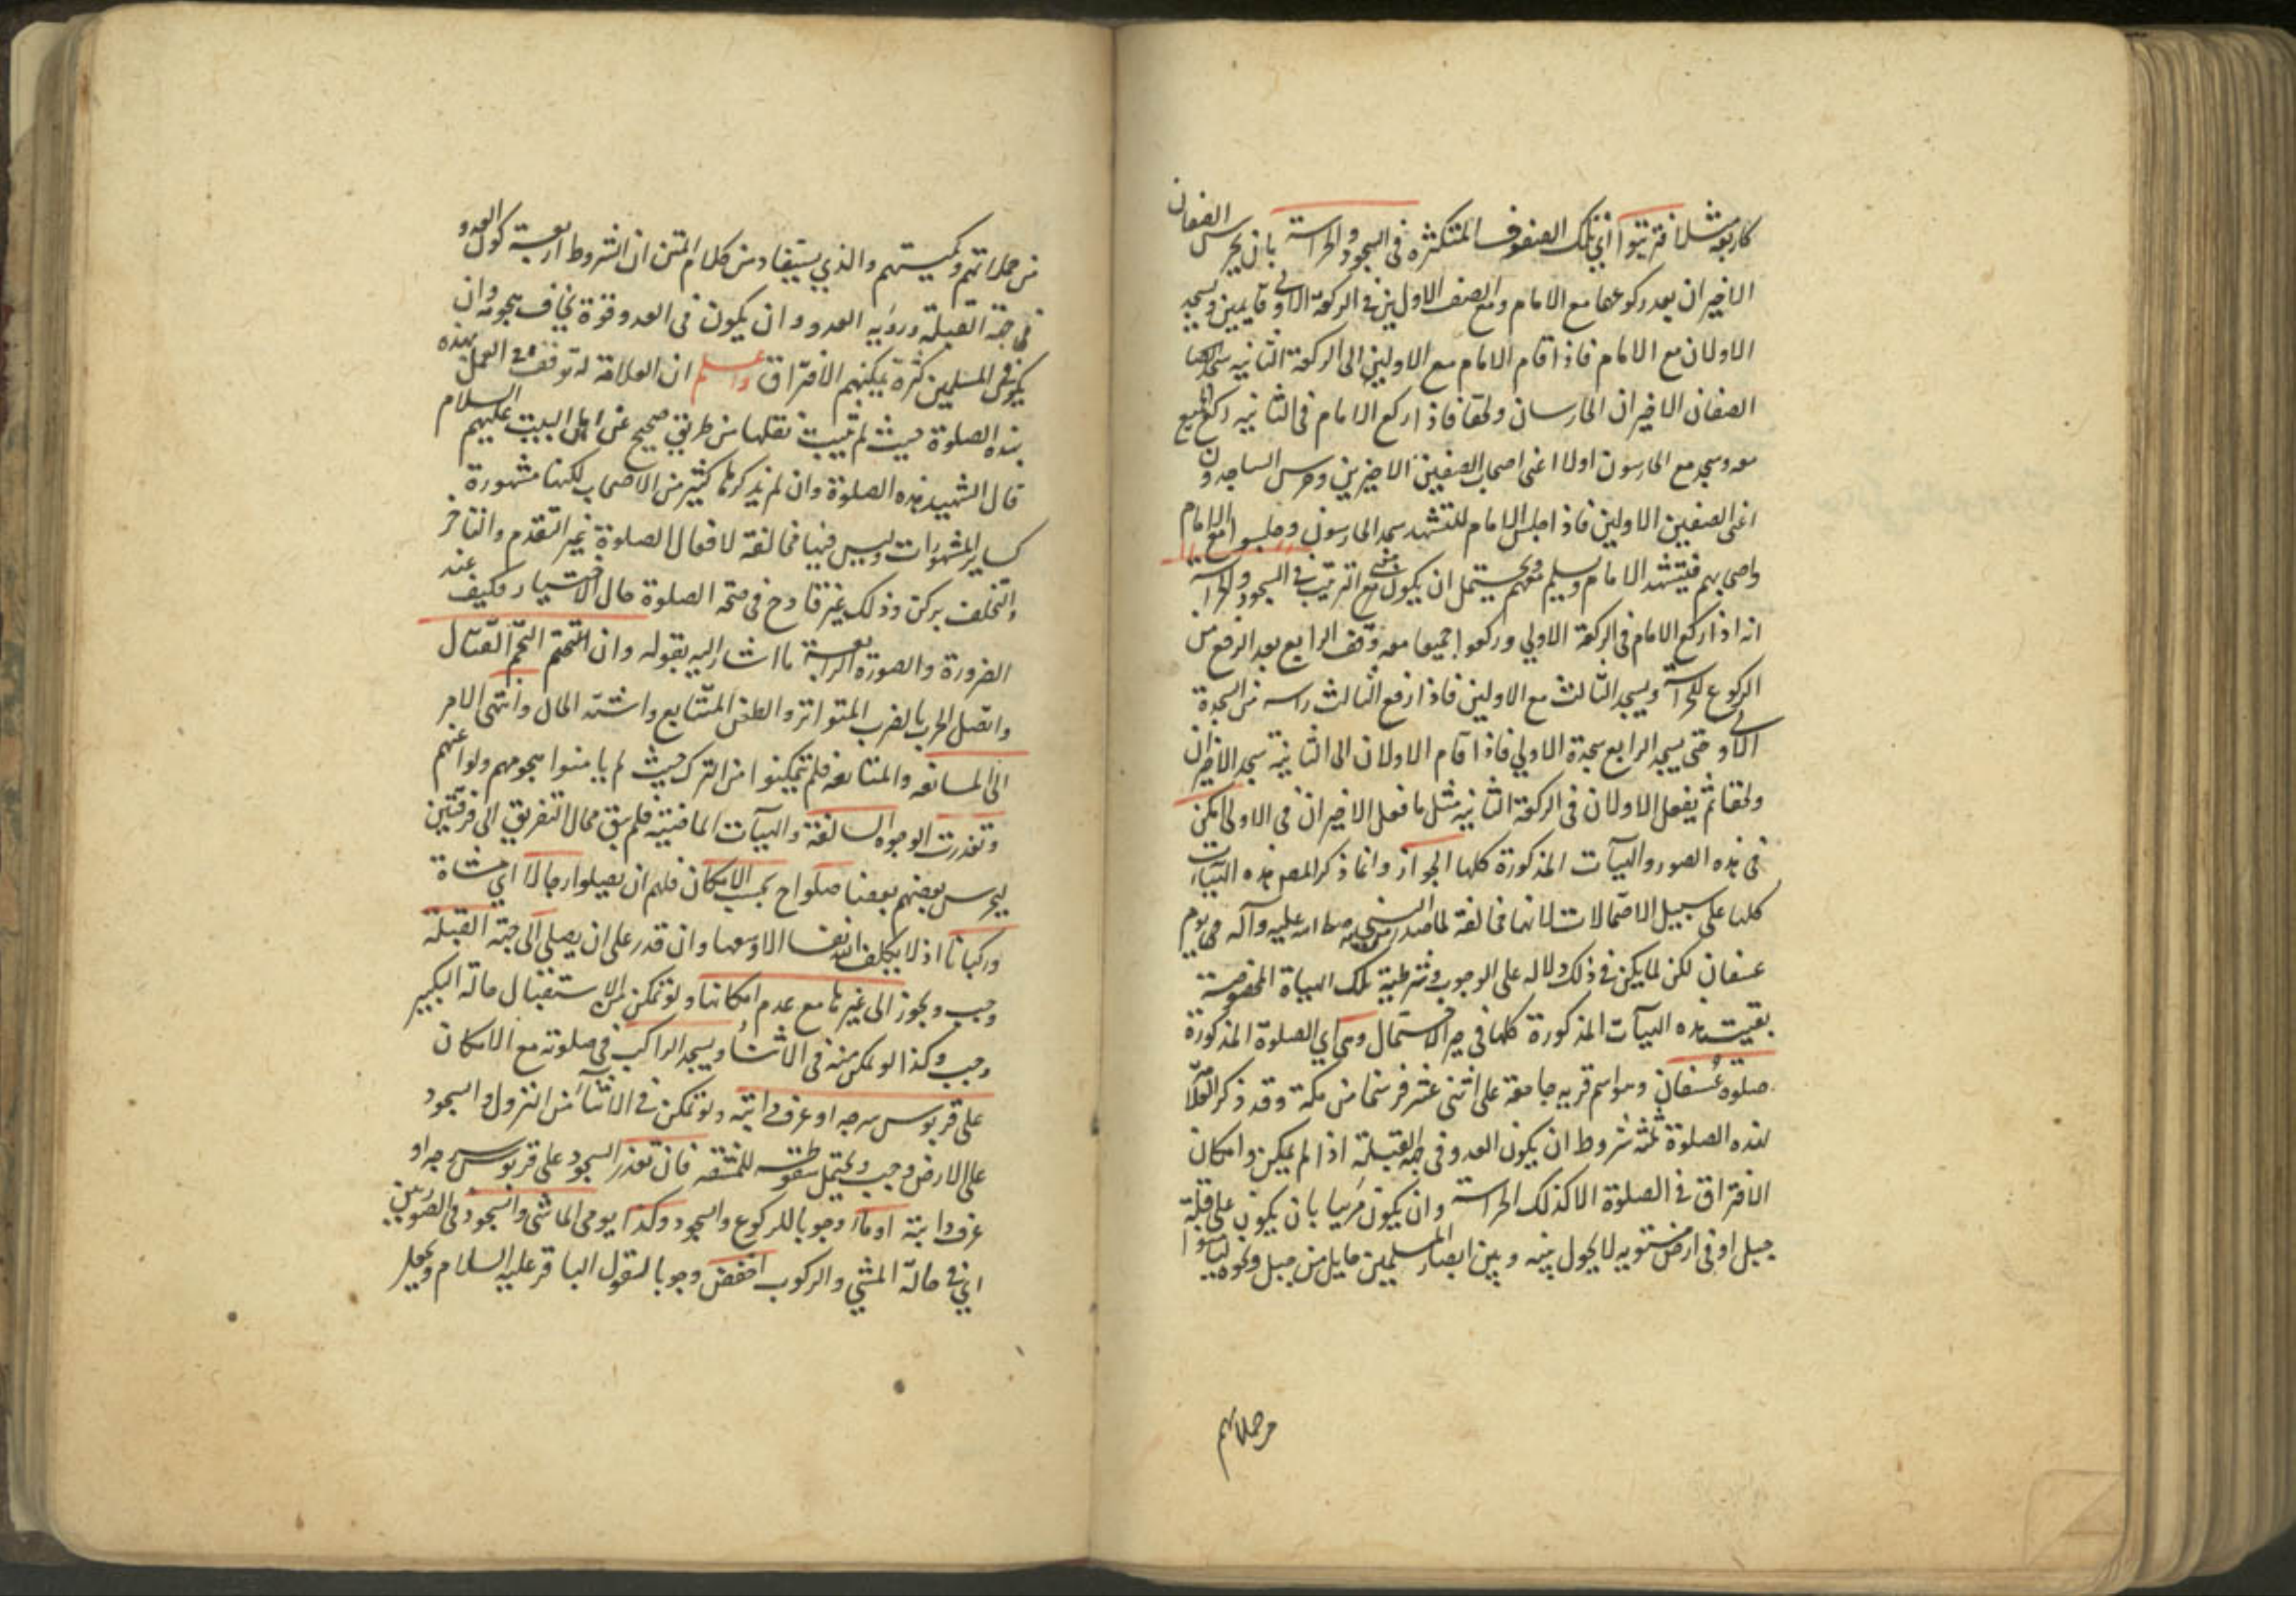 كاربعة مثلا فترتبوا أي تلك الصفوف المتكثرة في السجود والحراسة بان يحرس الصفان
الاخيران بعد ركوعها مع الامام ومع الصف الاولين في الركعة الاولى قايمين ويسجد
الاولان مع الامام فاذا قام الامام مع الاولين الى الركعة الثانيه سجد
الصفان الاخيران الحارسان ولحقا فاذا ركع الامام في الثانيه ركع الجميع
معه وسجد مع الحارسون اولا اعنى اصحاب الصفين الاخيرين وحرس الساجدون
اعنى الصفين الاولين فاذا جلس الامام للتشهد سجد الحارسون وجلسوا مع الامام
واصحابهم فيتشهد الامام ويسلم معهم ويحتمل ان يكون مع الترتيب في السجود والحراسة
انه اذا ركع الامام في الركعة الاولي وركعوا جميعا معه وقف الرابع بعد الرفع من
الركوع للحراسة ويسجد الثالث مع الاولين فاذا رفع الثالث راسه من السجدة
الاولى حتى يسجد الرابع سجدة الاولي فاذا قام الاولان الى الثانية سجد الاخيران
ولحقا ثم يفعل الاولان في الركعة الثانيه مثل ما فعل الاخيران في الاولى لكن
في هذه الصور والهيآت المذكورة كلها الجواز وانما ذكر المصر هذه الهيآت
كلها على سبيل الاحتمالات لانها مخالفة لما صدر من النبي صلى الله عليه وآله في يوم
عسفان لكن لما يكن في ذلك دلاله على الوجوب وشرطية تلك الهياة المخصوصة
بقيت هذه الهيآت المذكورة كلها في حيز الاحتمال وهى اي الصلوة المذكورة
صلوة عُسفان وهو اسم قريه جامعة على اثنى عشر فرسخا من مكة وقد ذكر
لهذه الصلوة ثلثة شروط ان يكون العدو في جهة القبلة اذا لم يكن وامكان
الافتراق في الصلوة الا كذلك الحراسة وان يكون مَرئيا بان يكون على قلة
جبل او في ارض مستويه لا يحول بينه وبين ابصار المسلمين حايل من جبل ونحوه ليامنوا
من حملاتهم
من حملاتهم وكميتهم والذي يستفاد من كلام المتن ان الشروط اربعة كون العدو
في جهة القبلة ورؤيه العدو وان يكون في العدو قوة يخاف هجومه وان
يكون في المسلمين كثرة يمكنهم الافتراق واعلم ان العلامة له توقف في العمل بهذه
هذه الصلوة حيث لم تثبت نقلها من طريق صحيح عن اهل البيت عليهم السلام
قال الشهيد هذه الصلوة وان لم يذكرها كثير من الاصحاب لكنها مشهورة
كساير المشهورات وليس فيها مخالفة لافعال الصلوة غير التقدم والتاخر
والتخلف بركن وذلك غير قادح في صحة الصلوة حال الاختيار فكيف عند
الضرورة والصورة الرابعة ما اشار اليه بقوله وان التحم القتال
واتصل الحرب بالضرب المتواتر والطعن المتتابع واشتد الحال وانتهى الامر
الى المسايفه والمعانقه فلم يتمكنوا من الترك حيث لم يامنوا هجومهم ولوا عنهم
وتعذرت الوجوه السالفة والهيآت الماضية فلم يبق مجال التفريق الى فرقتين
ليحرس بعضهم بعضا صلوا ح بحسب الامكان فلهم ان يصلوا رجالا اي مشاة
وركبانا اذ لا يكلف الله نفسا الا وسعها وان قدر على ان يصلي الى جهة القبلة
وجب ويجوز الى غيرها مع عدم امكانها ولو تمكن من الاستقبال حالة التكبير
وجب وكذا لو تمكن منه في الاثناء ويسجد الراكب في صلوته مع الامكان
على قربوس سرجه او عرف دابته ولو تمكن في الاثناء من النزول والسجود
على الارض وجب ويحتمل سقوطه للمشقه فان تعذر السجود على قربوس سرجه او
عرف دابته اومأ وجوبا للركوع والسجود وكذا يومى الماشى والسجود في الصورتين
اي في حالة المشي والركوب اخفض وجوبا لقول الباقر عليه السلام ويجعل